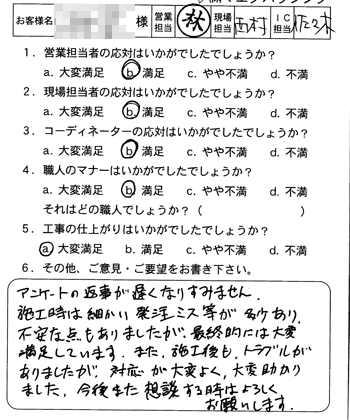 お客様名 様 営業担当 秋 現場担当 西村 IC担当 佐々木
1．営業担当者の応対はいかがでしたでしょうか？
a. 大変満足 b. 満足 c. やや不満 d. 不満
2．現場担当者の応対はいかがでしたでしょうか？
a. 大変満足 b. 満足 c. やや不満 d. 不満
3．コーディネーターの応対はいかがでしたでしょうか？
a. 大変満足 b. 満足 c. やや不満 d. 不満
4．職人のマナーはいかがでしたでしょうか？
a. 大変満足 b. 満足 c. やや不満 d. 不満
それはどの職人でしょうか？（ ）
5．工事の仕上がりはいかがでしたでしょうか？
a. 大変満足 b. 満足 c. やや不満 d. 不満
6．その他、ご意見・ご要望をお書き下さい。
アンケートの返事が遅くなりすみません。
施工時は細かい発注ミス等が多々あり、
不安な点もありましたが、最終的には大変
満足しています。また、施工後も、トラブルが
ありましたが、対応が大変よく、大変助かり
ました。今後また相談する時はよろしく
お願いします。